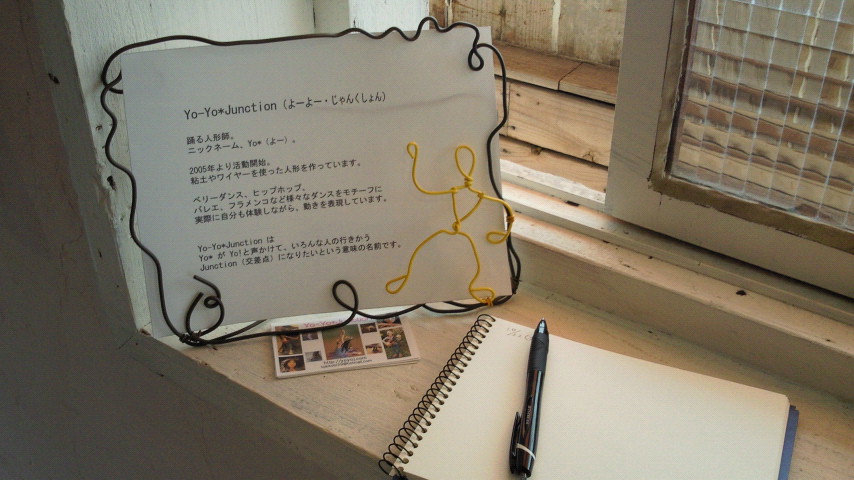 Yo-Yo*Junction (よーよー・じゃんくしょん)
踊る人形師。
ニックネーム、Yo*（よー）。
2005年より活動開始。
粘土やワイヤーを使った人形を作っています。
ベリーダンス、ヒップホップ、
バレエ、フラメンコなど様々なダンスをモチーフに
実際に自分も体験しながら、動きを表現しています。
Yo-Yo*Junction は
Yo* が Yo!と声かけて、いろんな人の行きかう
Junction（交差点）になりたいという意味の名前です。